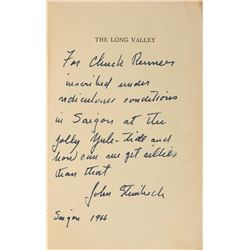 THE LONG VALLEY
For Chuck Renners
inscribed under
rediculous conditions
in Saigon at the
jolly Yule-Tide and
how can we get sillier
than that
John Steinbeck
Saigon 1966